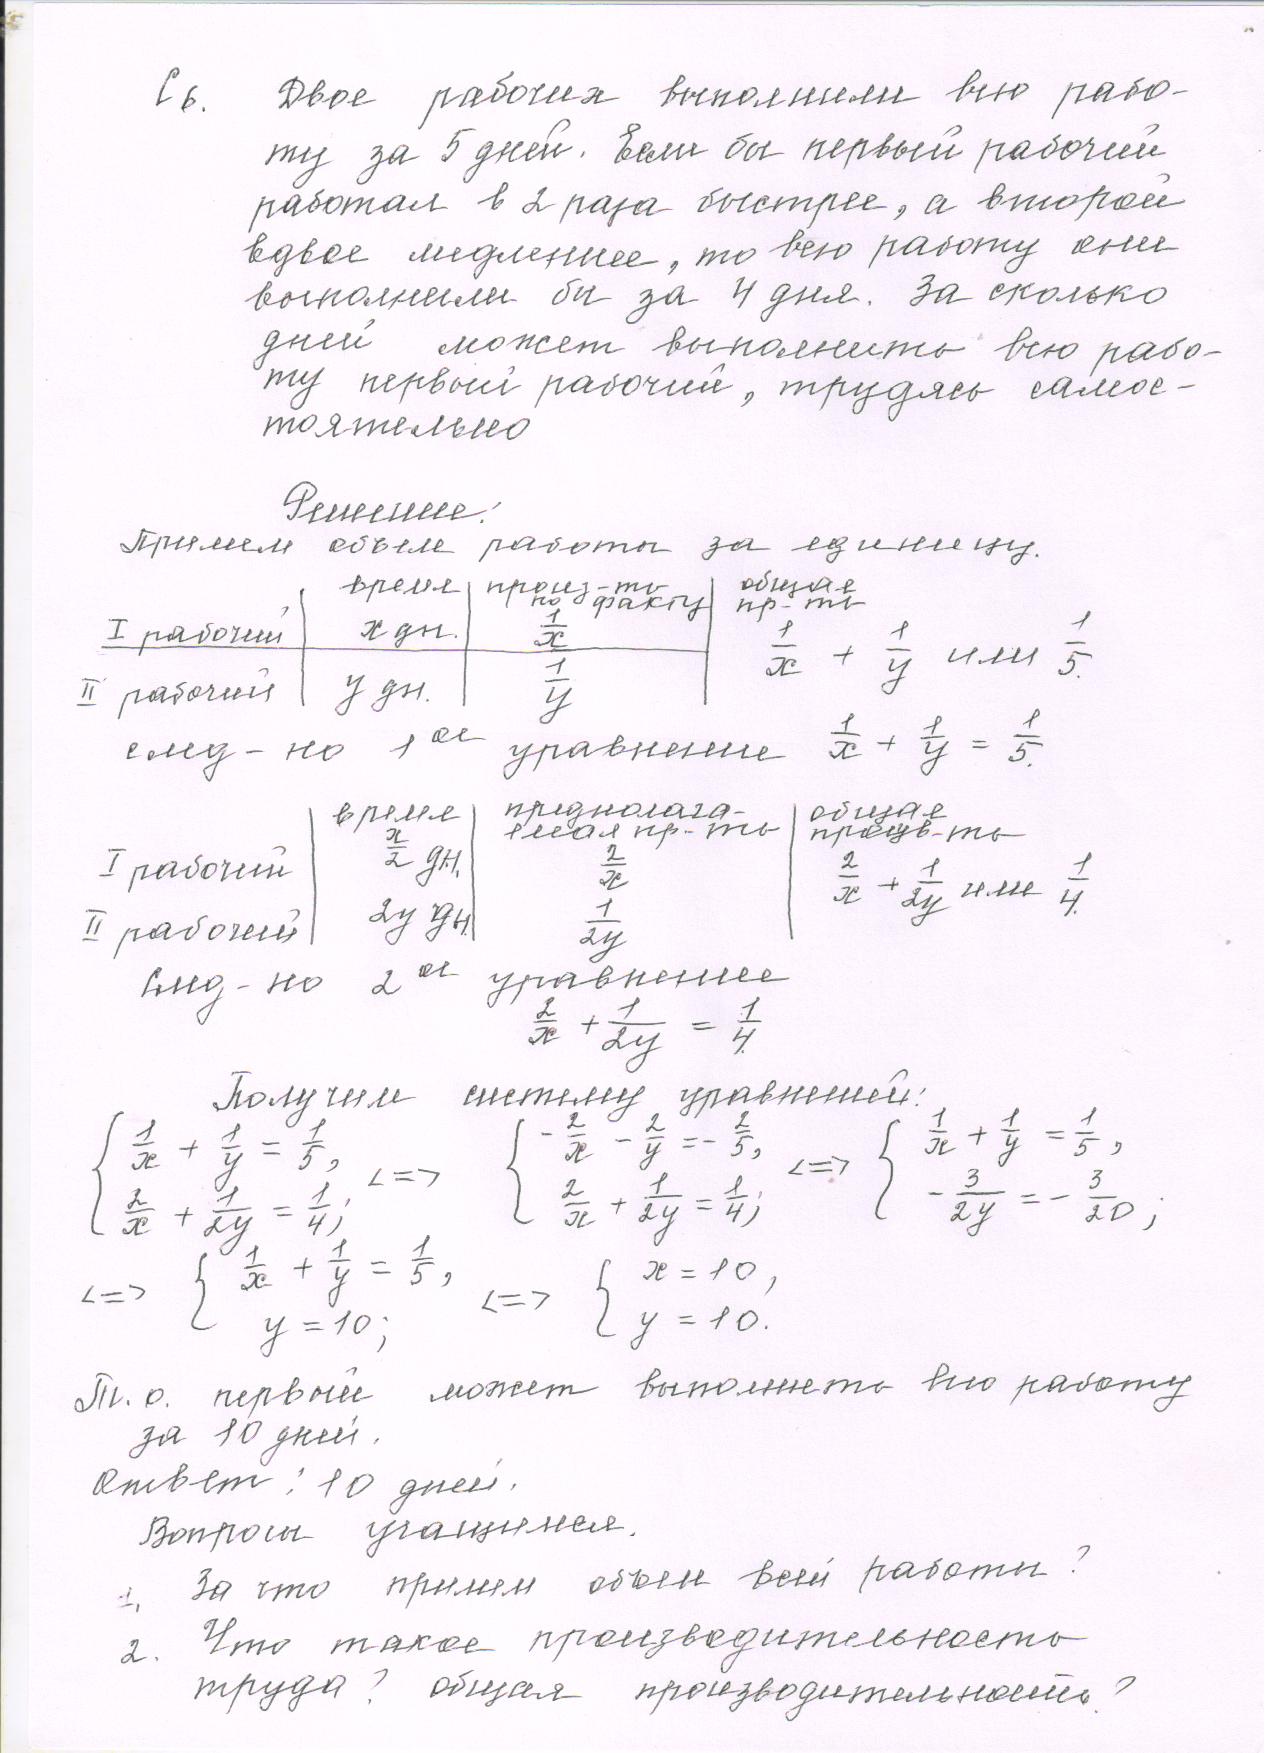 С6. Двое рабочих выполнили всю рабо-
ту за 5 дней. Если бы первый рабочий
работал в 2 раза быстрее, а второй
вдвое медленнее, то всю работу они
выполнили бы за 4 дня. За сколько
дней может выполнить всю рабо-
ту первый рабочий, трудясь самос-
тоятельно
Решение:
Примем объем работы за единицу.
время | произ-ть по факту | общая пр-ть
I рабочий | x дн. | 1/x | 1/x + 1/y или 1/5.
II рабочий | y дн. | 1/y
след-но 1ое уравнение 1/x + 1/y = 1/5.
время | предполага-емая пр-ть | общая произв-ть
I рабочий | x/2 дн. | 2/x | 2/x + 1/2y или 1/4.
II рабочий | 2y дн. | 1/2y
След-но 2ое уравнение
2/x + 1/2y = 1/4.
Получим систему уравнений:
{ 1/x + 1/y = 1/5, <=> { -2/x - 2/y = -2/5, <=> { 1/x + 1/y = 1/5,
2/x + 1/2y = 1/4; 2/x + 1/2y = 1/4; -3/2y = -3/20;
<=> { 1/x + 1/y = 1/5, <=> { x = 10,
y = 10; y = 10.
Т.о. первый может выполнить всю работу
за 10 дней.
Ответ: 10 дней.
Вопросы учащимся.
1. За что примем объем всей работы?
2. Что такое производительность
труда? общая производительность?